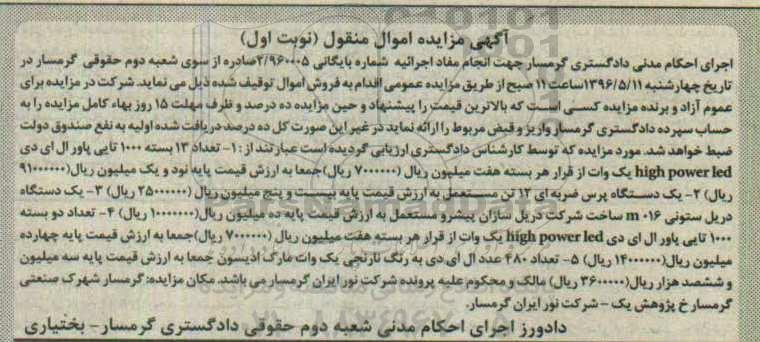 آگهی مزایده اموال منقول (نوبت اول)
اجرای احکام مدنی دادگستری گرمسار جهت انجام مفاد اجرائیه شماره بایگانی ۲/۹۶۰۰۰۵صادره از سوی شعبه دوم حقوقی گرمسار در
تاریخ چهارشنبه ۱۳۹۶/۵/۱۱ساعت ۱۱ صبح از طریق مزایده عمومی اقدام به فروش اموال توقیف شده ذیل می نماید. شرکت در مزایده برای
عموم آزاد و برنده مزایده کسی است که بالاترین قیمت را پیشنهاد و حین مزایده ده درصد و ظرف مهلت ۱۵ روز بهاء کامل مزایده را به
حساب سپرده دادگستری گرمسار واریز و قبض مربوط را ارائه نماید در غیر این صورت کل ده درصد دریافت شده اولیه به نفع صندوق دولت
ضبط خواهد شد. مورد مزایده که توسط کارشناس دادگستری ارزیابی گردیده است عبارتند از : ۱- تعداد ۱۳ بسته ۱۰۰۰ تایی پاور ال ای دی
high power led یک وات از قرار هر بسته هفت میلیون ریال (۷۰۰۰۰۰۰ ریال)جمعا به ارزش قیمت پایه نود و یک میلیون ریال(۹۱۰۰۰۰۰۰
ریال) ۲- یک دستگاه پرس ضربه ای ۱۲ تن مستعمل به ارزش قیمت پایه بیست و پنج میلیون ریال (۲۵۰۰۰۰۰۰ ریال) ۳- یک دستگاه
دریل ستونی m ۰۱۶ ساخت شرکت دریل سازان پیشرو مستعمل به ارزش قیمت پایه ده میلیون ریال(۱۰۰۰۰۰۰۰ ریال) ۴- تعداد دو بسته
۱۰۰۰ تایی پاور ال ای دی high power led یک وات از قرار هر بسته هفت میلیون ریال (۷۰۰۰۰۰۰ ریال)جمعا به ارزش قیمت پایه چهارده
میلیون ریال(۱۴۰۰۰۰۰۰ ریال) ۵- تعداد ۴۸۰ عدد ال ای دی به رنگ نارنجی یک وات مارک ادیسون جمعا به ارزش قیمت پایه سه میلیون
و ششصد هزار ریال(۳۶۰۰۰۰۰ ریال) مالک و محکوم علیه پرونده شرکت نور ایران گرمسار می باشد. مکان مزایده: گرمسار شهرک صنعتی
گرمسار خ پژوهش یک - شرکت نور ایران گرمسار.
دادورز اجرای احکام مدنی شعبه دوم حقوقی دادگستری گرمسار- بختیاری